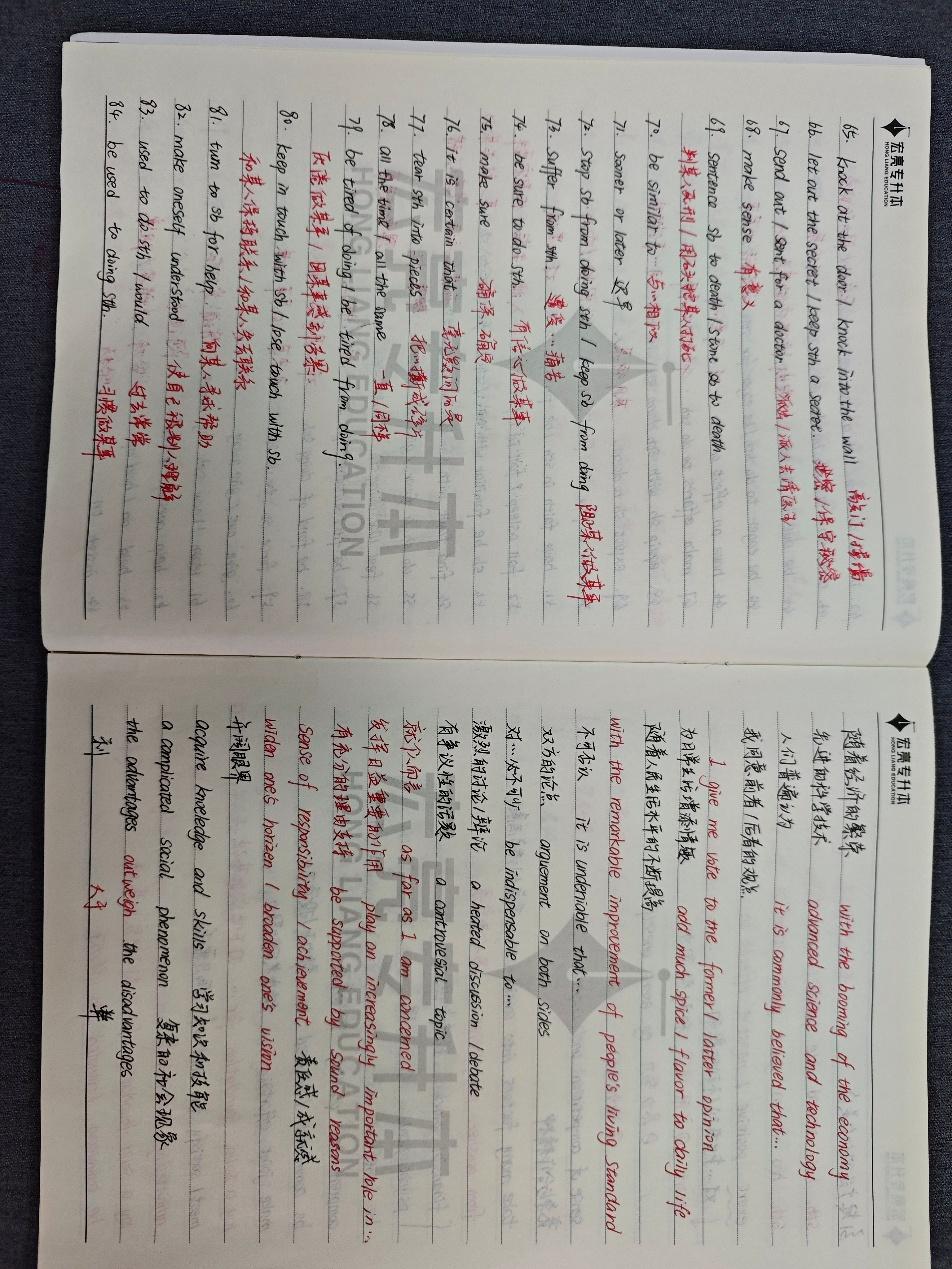 宏亮专升本
HONG LIANG EDUCATION
65. knock at the door / knock into the wall 敲门/撞墙
66. let out the secret / keep sth a secret. 泄密/保守秘密
67. send out / sent for a doctor 派人去请医生
68. make sense 有意义
69. sentence sb to death / stone sb to death
判某人死刑/用石头把某人砸死
70. be similar to 与…相似
71. sooner or later 迟早
72. stop sb from doing sth / keep sb from doing 阻止某人做某事
73. suffer from sth 遭受…痛苦
74. be sure to do sth. 有信心做某事
75. make sure 确保
76. it is certain that 毫无疑问的是
77. tear sth into pieces 把…撕成碎片
78. all the time / all the same 一直/同样
79. be tired of doing / be tired from doing.
厌倦做某事/因某事感到疲累
80. keep in touch with sb / lose touch with sb.
和某人保持联系/和某人失去联系
81. turn to sb for help 向某人寻求帮助
82. make oneself understood 使自己被别人理解
83. used to do sth / would 过去常常
84. be used to doing sth. 习惯做某事
宏亮专升本
HONG LIANG EDUCATION
随着经济的繁荣 with the booming of the economy
先进的科学技术 advanced science and technology
人们普遍认为 it is commonly believed that...
我同意前者/后者的观点
I give me vote to the former / latter opinion
为日常生活增添情趣 add much spice / flavor to daily life
随着人民生活水平的不断提高
with the remarkable improvement of people's living standard
不可否认 it is undeniable that...
双方的论点 arguement on both sides
对…必不可少 be indispensable to...
激烈的讨论/辩论 a heated discussion / debate
有争议性的话题 a controvesial topic
就个人而言 as far as I am concerned
发挥日益重要的作用 play an increasingly important role in...
有充分的理由支持 be supported by sound reasons
Sense of responsibility / achievement 责任感/成就感
widen one's horizen / broaden one's vision
开阔眼界
acquire knowledge and skills 学习知识和技能
a complicated social phenomenon 复杂的社会现象
the advantages outweigh the disadvantages
利 大于 弊
宏亮专升本
HONG LIANG EDUCATION
宏亮专升本
HONG LIANG EDUCATION